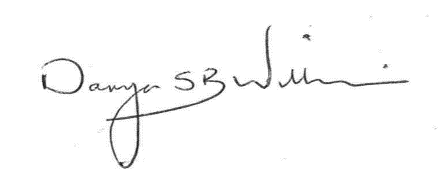 Danya SB Willi